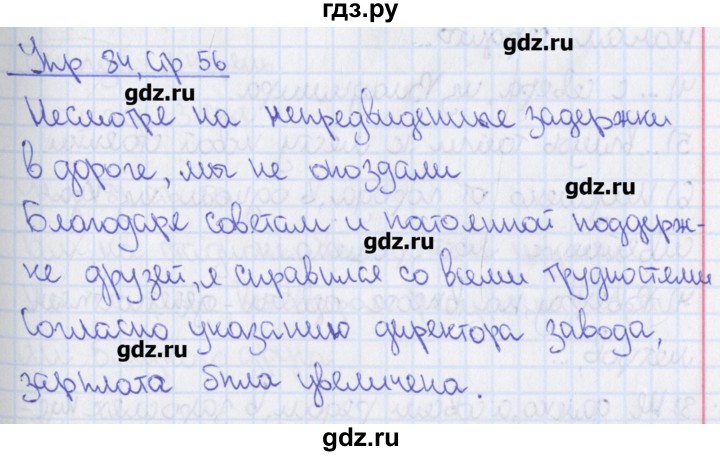 гдз.ру
Упр 84, стр 56
gdz.ru
Несмотре на непредвиденные задержки
в дороге, мы не опоздали
gdz.ru
Благодаре советам и постоянной поддерж-
gdz.ru
ке друзей, я справился со всеми трудностями
Согласно указанию директора завода,
gdz.ru
зарплата была увеличена.
gdz.ru